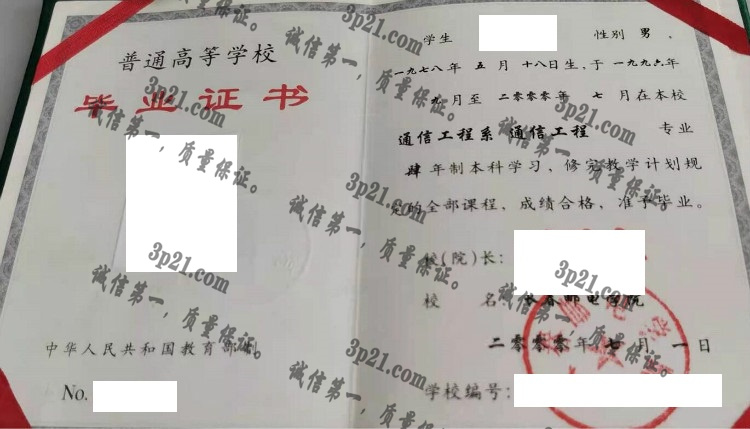 普通高等学校
毕业证书
中华人民共和国教育部制
No.
学生 性别 男 ,
一九七八年 五 月 十八日生,于 一九九六年
九 月至 二〇〇〇年 七 月在本校
通信工程系 通信工程 专业
肆 年制本科学习,修完教学计划规
定的全部课程,成绩合格,准予毕业。
校(院)长:
校 名: 长春邮电学院
二零零零年 七 月 一 日
学校编号:
3p21.com
诚信第一,质量保证。
3p21.com
诚信第一,质量保证。
3p21.com
诚信第一,质量保证。
3p21.com
诚信第一,质量保证。
3p21.com
诚信第一,质量保证。
3p21.com
诚信第一,质量保证。
3p21.com
诚信第一,质量保证。
3p21.com
诚信第一,质量保证。